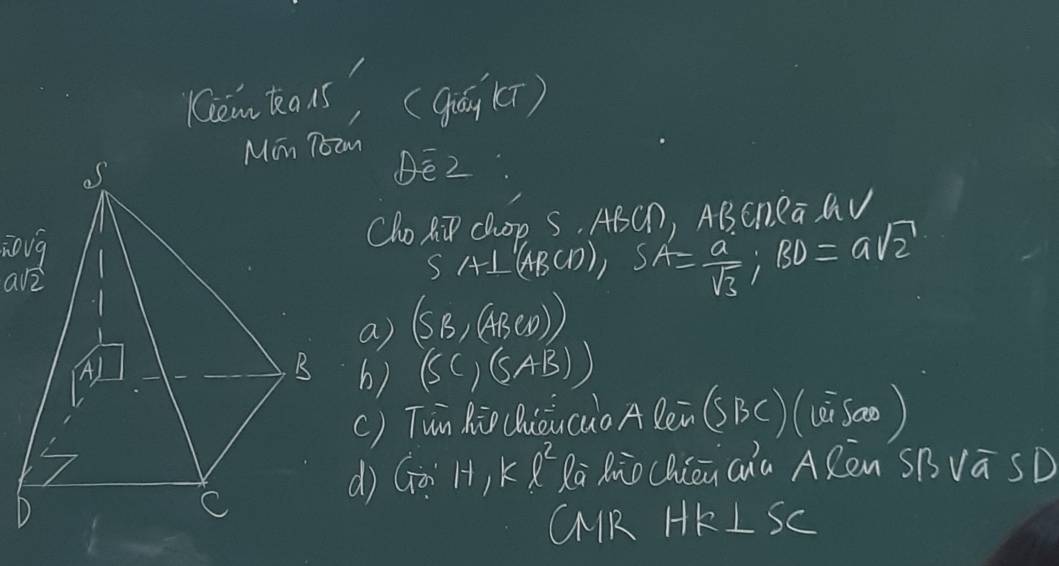 Kiểm tra 15', (giấy KT)
Môn Toán
Đề 2:
Cho hìp chóp S.ABCD, ABCD là hv
SA⊥(ABCD), SA = a/√3; BD = a√2
a) (SB,(ABCD))
b) (SC,(SAB))
c) Tìm hìn chiếu của A lên (SBC) (vì sao)
d) Gọi H, K l² là hìn chiếu của A lên SB và SD
CMR HK⊥SC
S
a√2
A
B
D
C